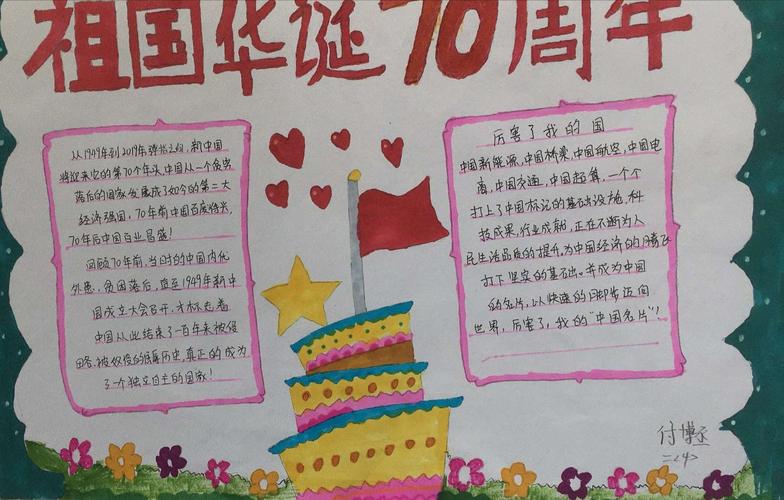 祖国华诞70周年
从1949年到2019年
新中国
将迎来它的第70个年头,中国从一个贫穷
落后的国家发展成了如今的第二大
经济强国,70年前中国百废待兴,
70年后中国百业昌盛!
回顾70年前,当时的中国内忧
外患,贫困落后,直至1949年新中
国成立大会召开,才标志着
中国从此结束了一百年来被侵
略,被奴役的屈辱历史,真正的成为
了一个独立自主的国家!
厉害了我的国
中国新能源,中国桥梁,中国航空,中国电
商,中国交通,中国超算,一个个
打上了中国标记的基础设施,科
技成果,行业成就,正在不断为人
民生活品质的提升,为中国经济的腾飞
打下坚实的基础。并成为中国
的名片,以快速的脚步迈向
世界,厉害了,我的“中国名片”!
付博
二(4)